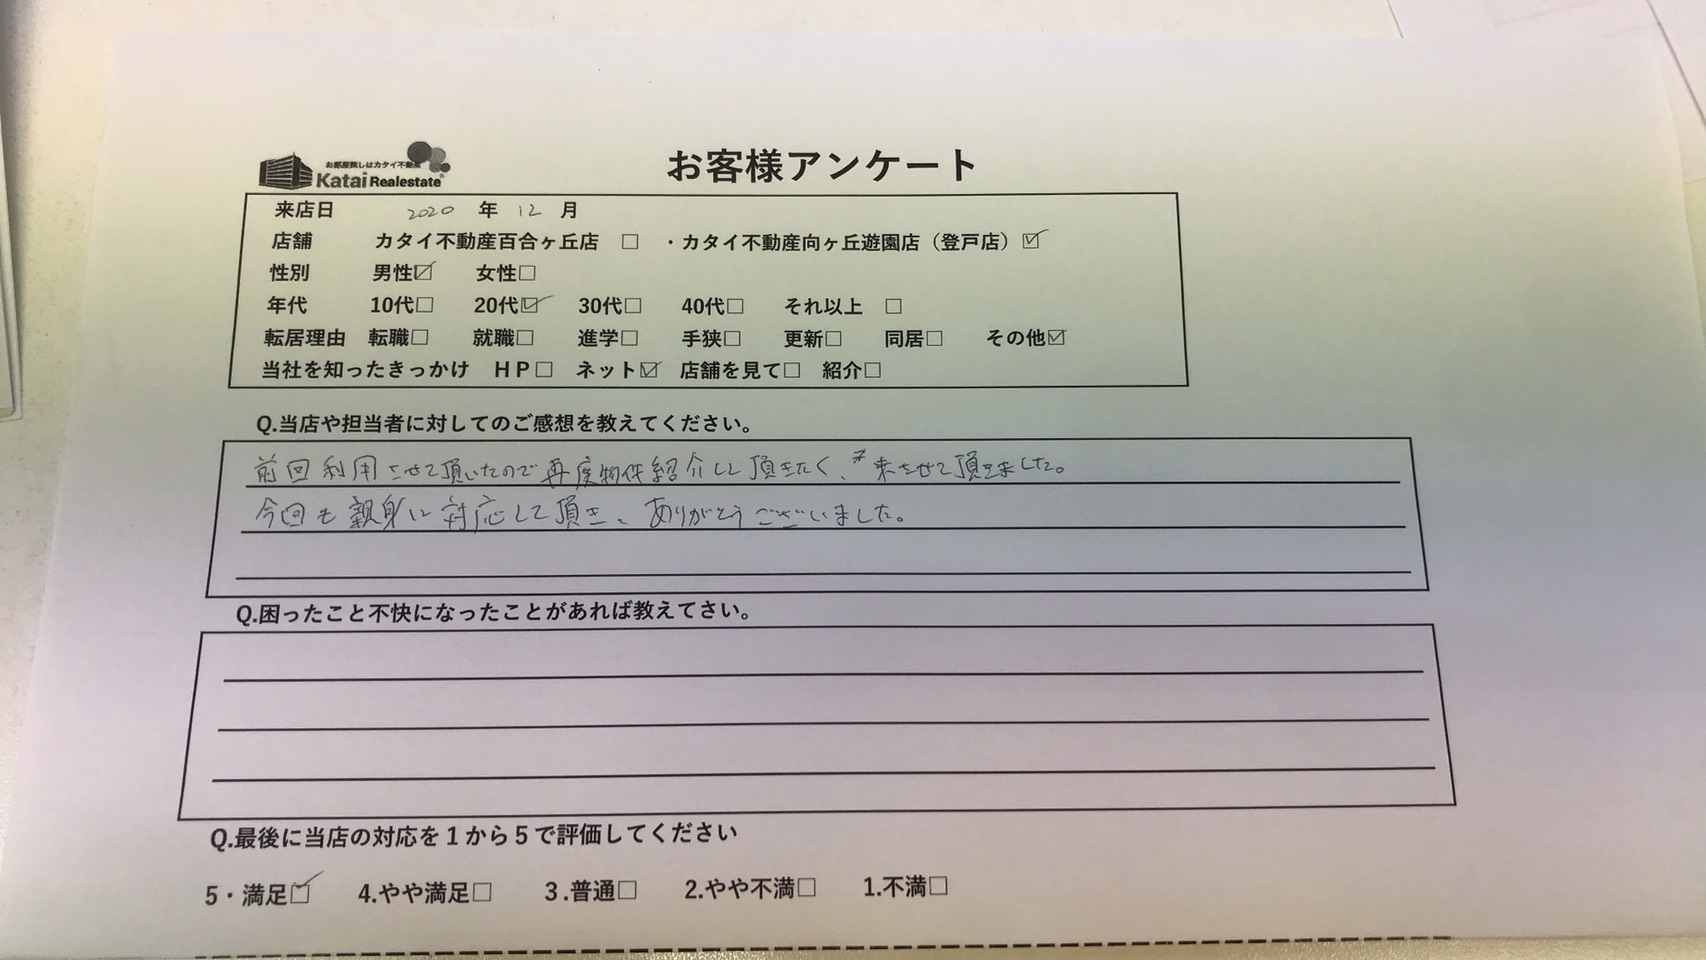 お部屋探しはカタイ不動産
Katai Realestate
お客様アンケート
来店日 2020 年 12 月
店舗 カタイ不動産百合ヶ丘店 □ ・カタイ不動産向ヶ丘遊園店（登戸店）☑
性別 男性☑ 女性□
年代 10代□ 20代☑ 30代□ 40代□ それ以上 □
転居理由 転職□ 就職□ 進学□ 手狭□ 更新□ 同居□ その他☑
当社を知ったきっかけ ＨＰ□ ネット☑ 店舗を見て□ 紹介□
Q.当店や担当者に対してのご感想を教えてください。
前回利用させて頂いたので再度物件紹介して頂きたく、来させて頂きました。
今回も親身に対応して頂き、ありがとうございました。
Q.困ったこと不快になったことがあれば教えてさい。
Q.最後に当店の対応を１から５で評価してください
5・満足☑ 4.やや満足□ 3.普通□ 2.やや不満□ 1.不満□